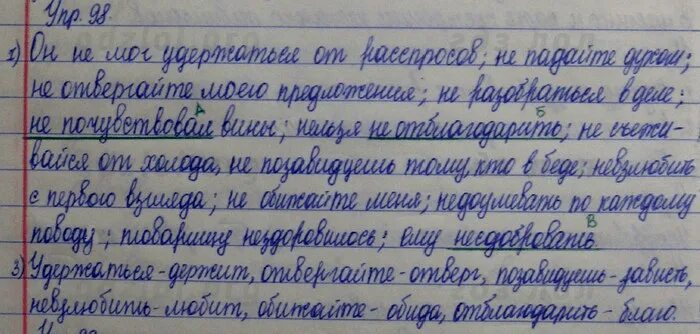 Упр. 98
1) Он не мог удержаться от расспросов; не падайте духом;
не отвергайте моего предложения; не разобраться в деле;
А Б
не почувствовал вины; нельзя не отблагодарить; не съежи-
вайся от холода, не позавидуешь тому, кто в беде; невзлюбить
с первого взгляда; не обижайте меня; недоумевать по каждому
В
поводу; товарищу нездоровилось; ему несдобровать
3) Удержаться-держит, отвергайте-отверг, позавидуешь-зависть,
невзлюбить-любит, обижайте-обида, отблагодарить-благо.